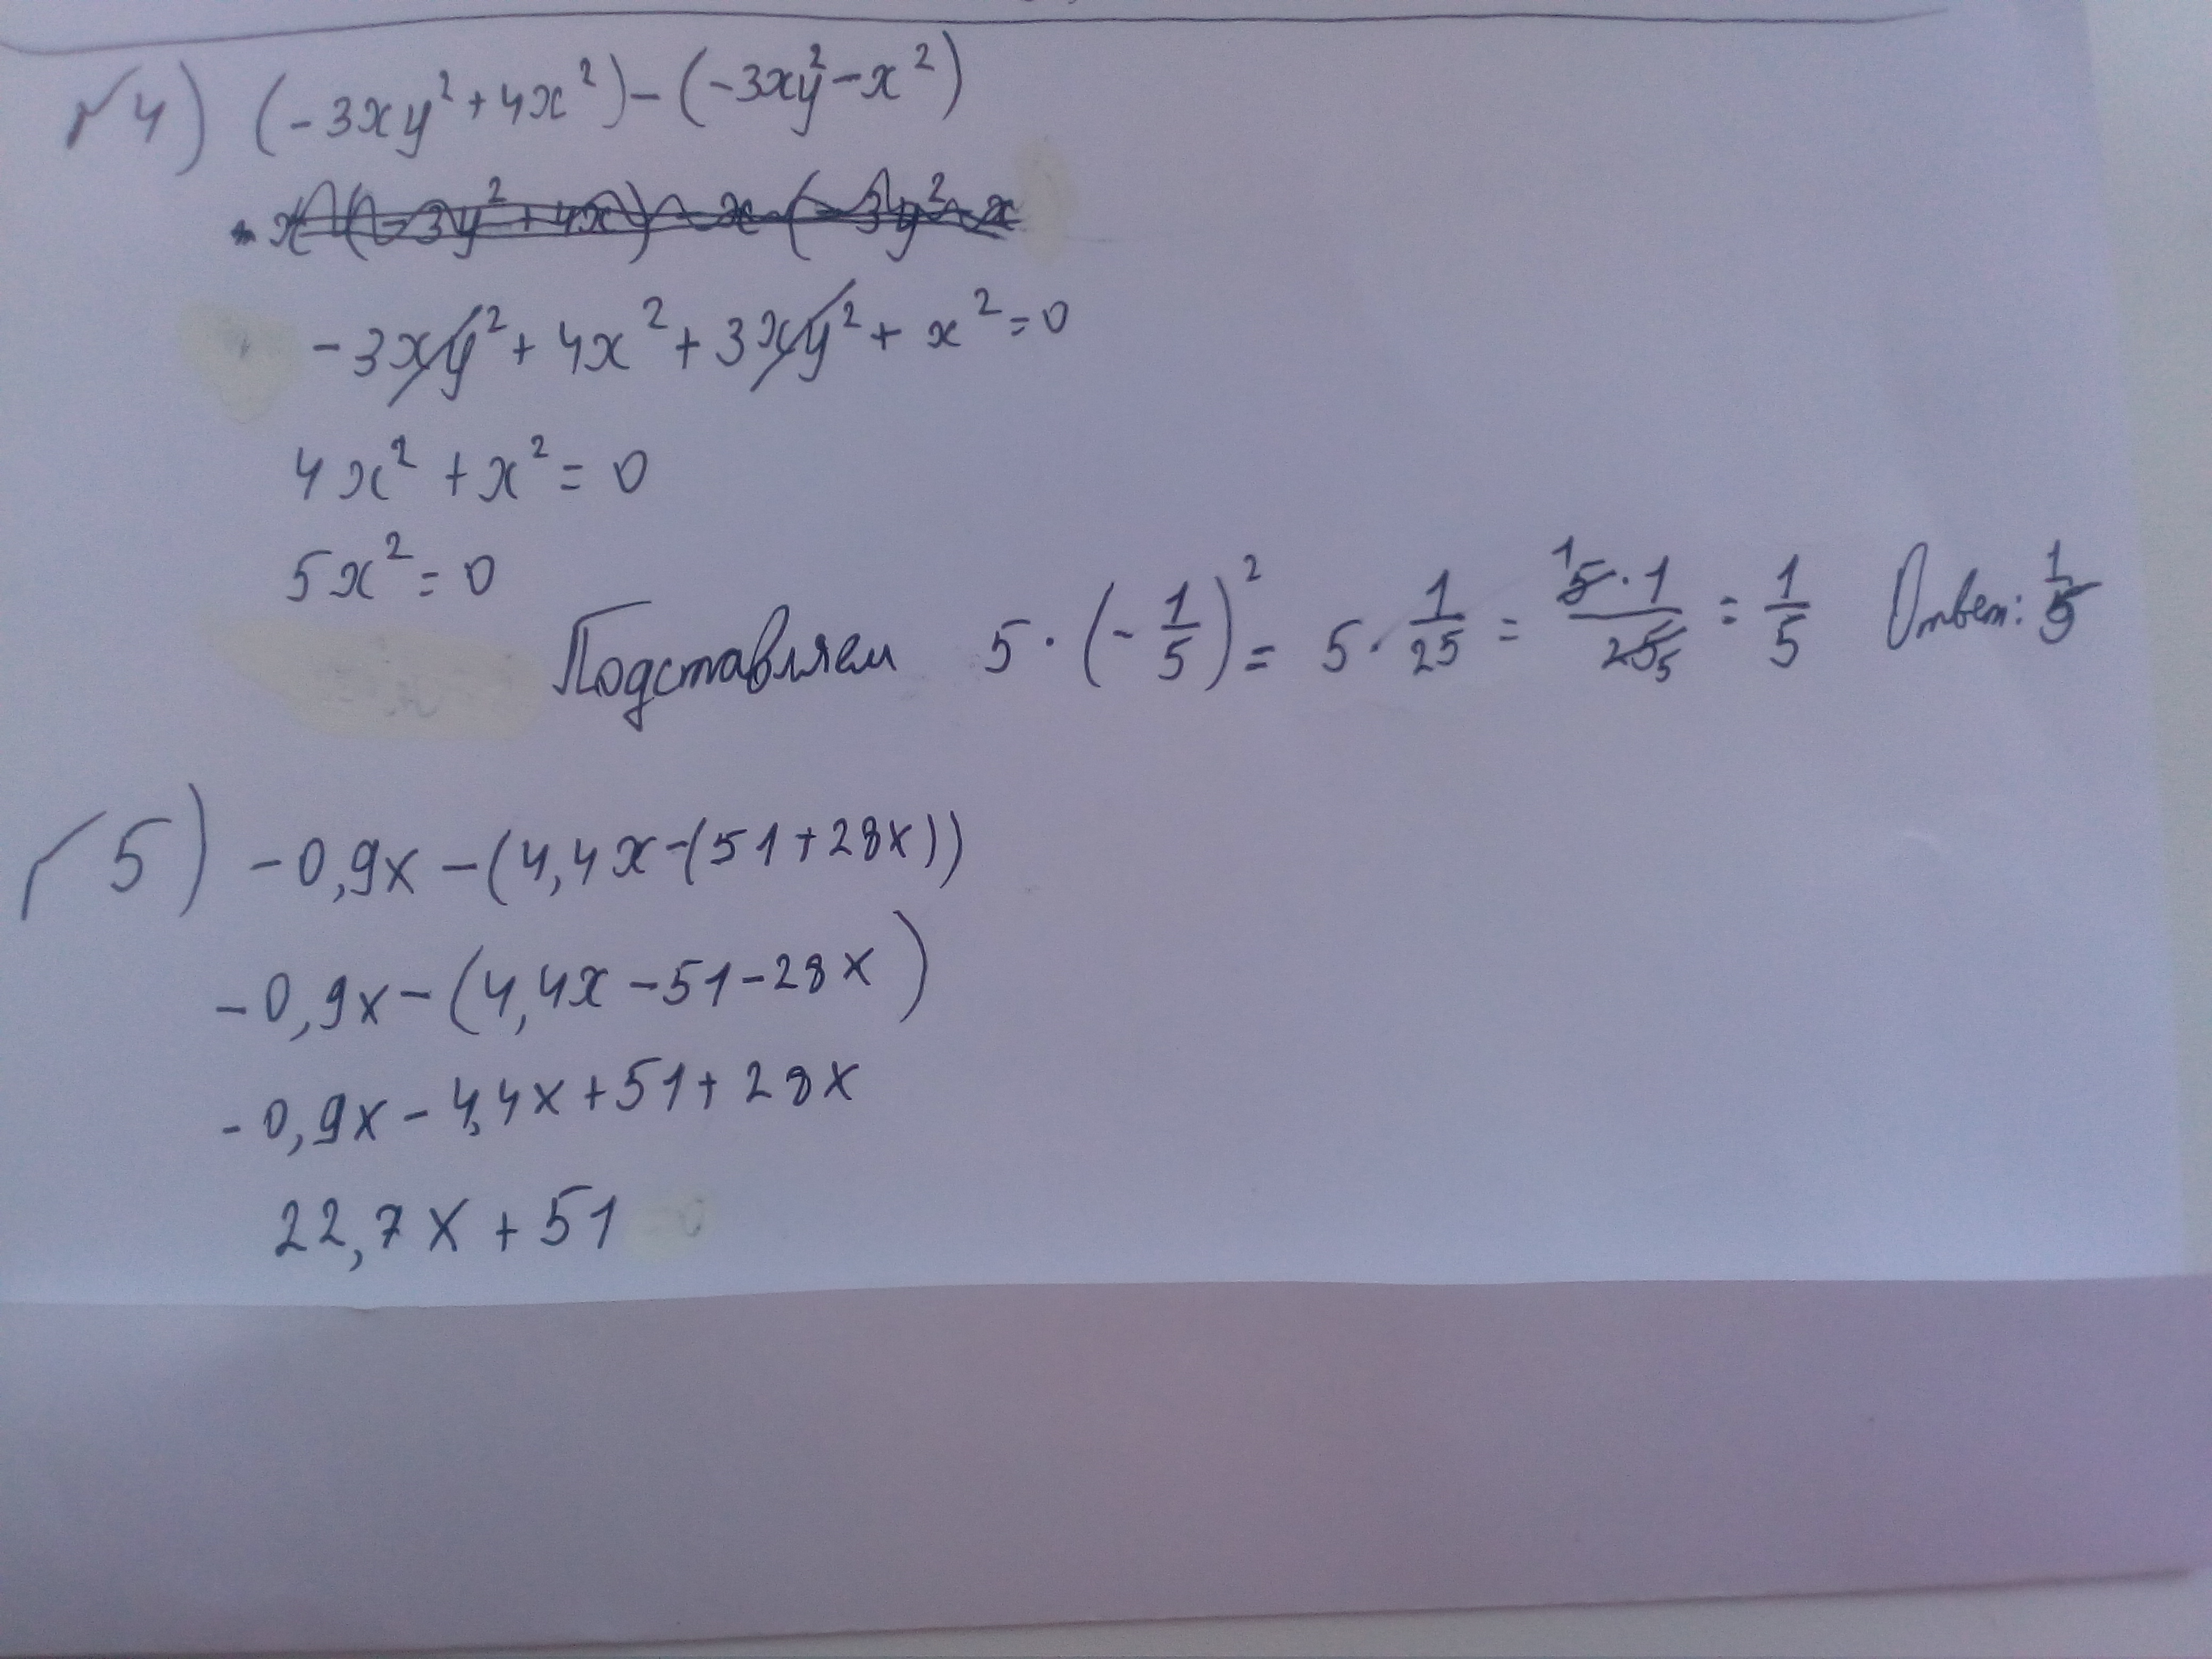 √4) (-3xy²+4x²)-(-3xy²-x²)
x(-3y²+4x)-x(-3y²-x
-3xy²+4x²+3xy²+x²=0
4x²+x²=0
5x²=0
Подставляем 5·(-1/5)²= 5·1/25 = 5·1/25 = 1/5 Ответ: 1/5
√5) -0,9x-(4,4x-(51+28x))
-0,9x-(4,4x-51-28x)
-0,9x-4,4x+51+28x
22,7x+51